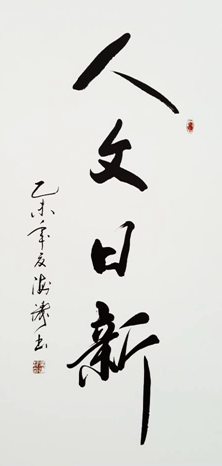 人文日新
乙未年夏海涛书